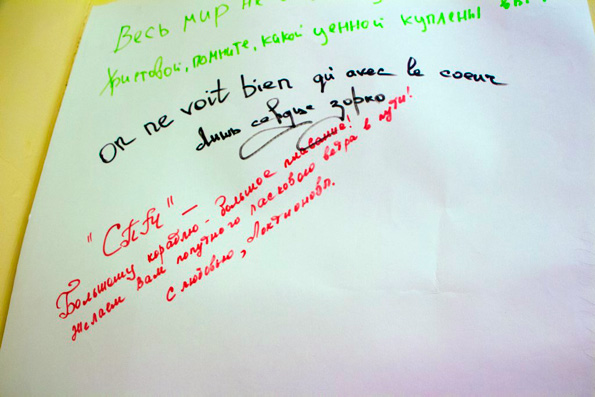 Весь мир не
Христовой, помните, какой ценной куплены вы
on ne voit bien qu avec le coeur
лишь сердце зорко
Большому кораблю - большое плавание!
Желаем Вам попутного ласкового ветра в пути!
С любовью, Локтионовы.